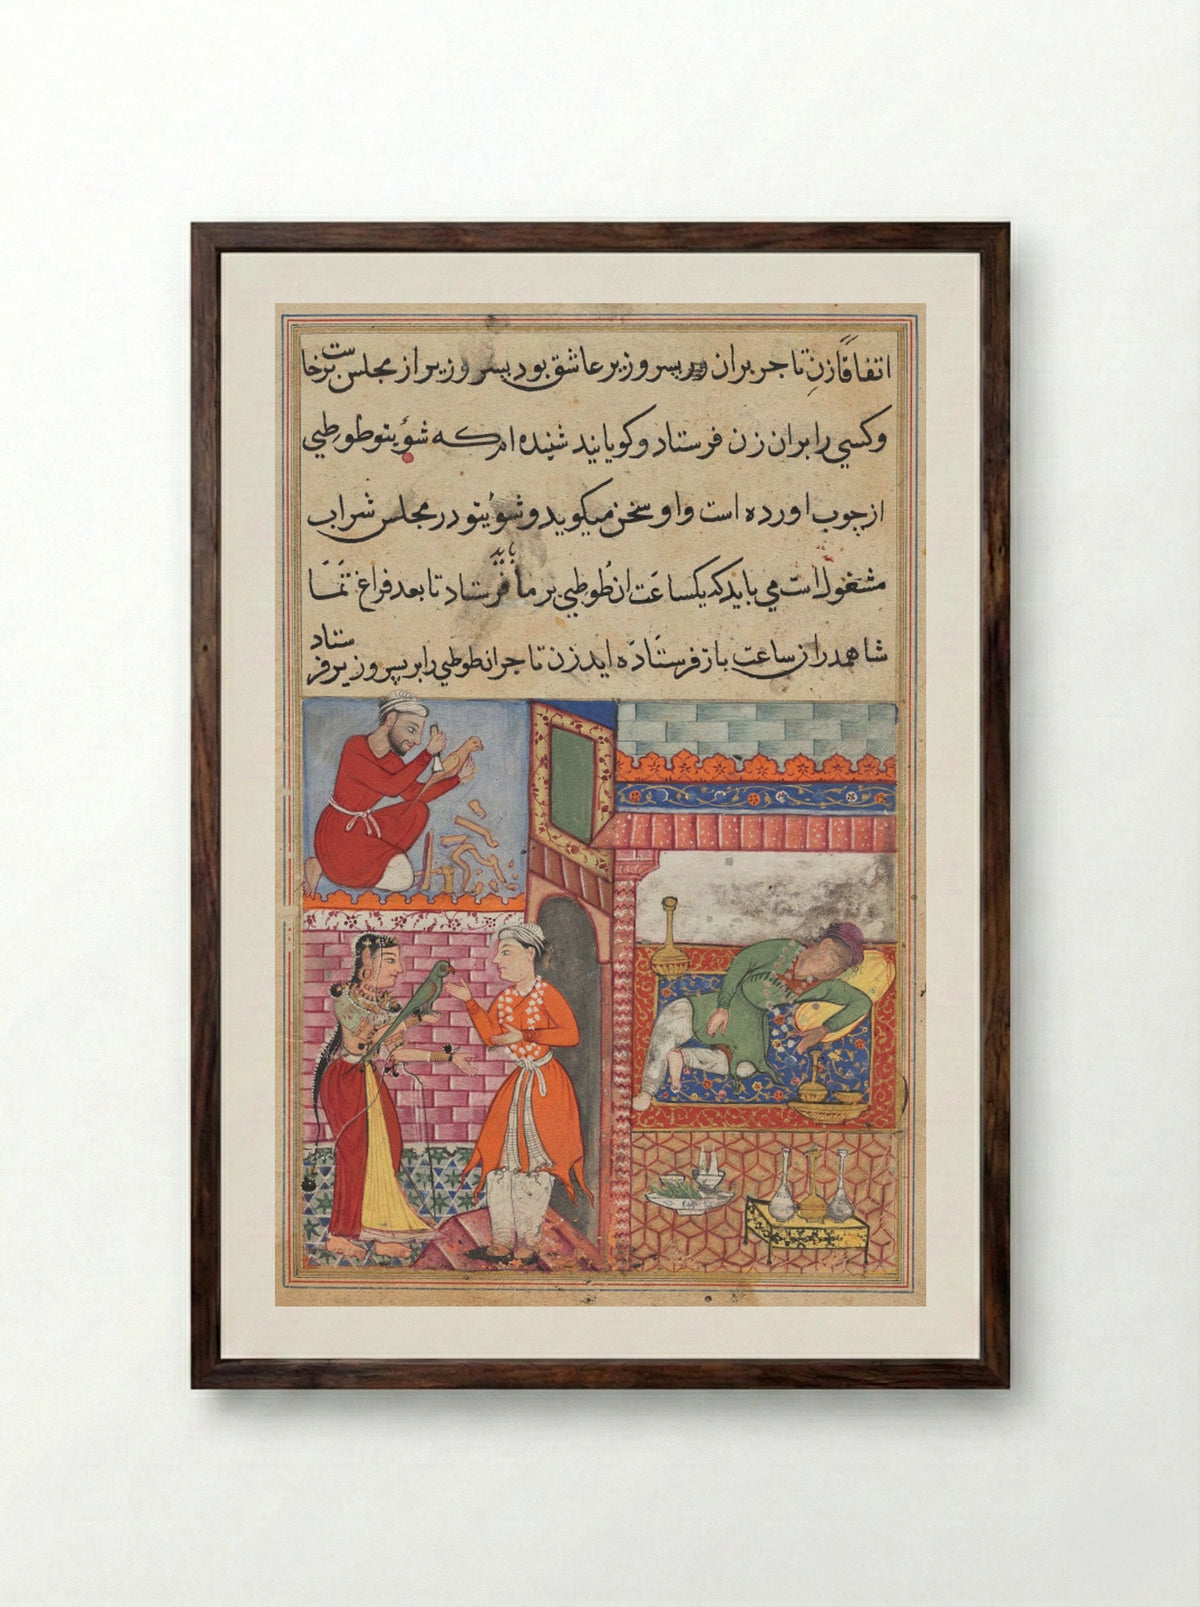 اتفاقًا زنِ تاجر بران پسر وزیر عاشق بود پسر وزیر از مجلس برخاست
وکسي را بران زن فرستاد و کویانید شنیده ام که شوٴیتو طوطئي
از چوب اورده است و او سخن میکوید و شوٴیتو در مجلس شراب
مشغول است مي باید که یکساعَت ان طُوطئي بر ما باید فرستاد تا بعد فراغ تَمَا
شا همدران ساعت باز فرستَادَه اید زن تاجر ان طوطئي را بر پسر وزیر فرستاد